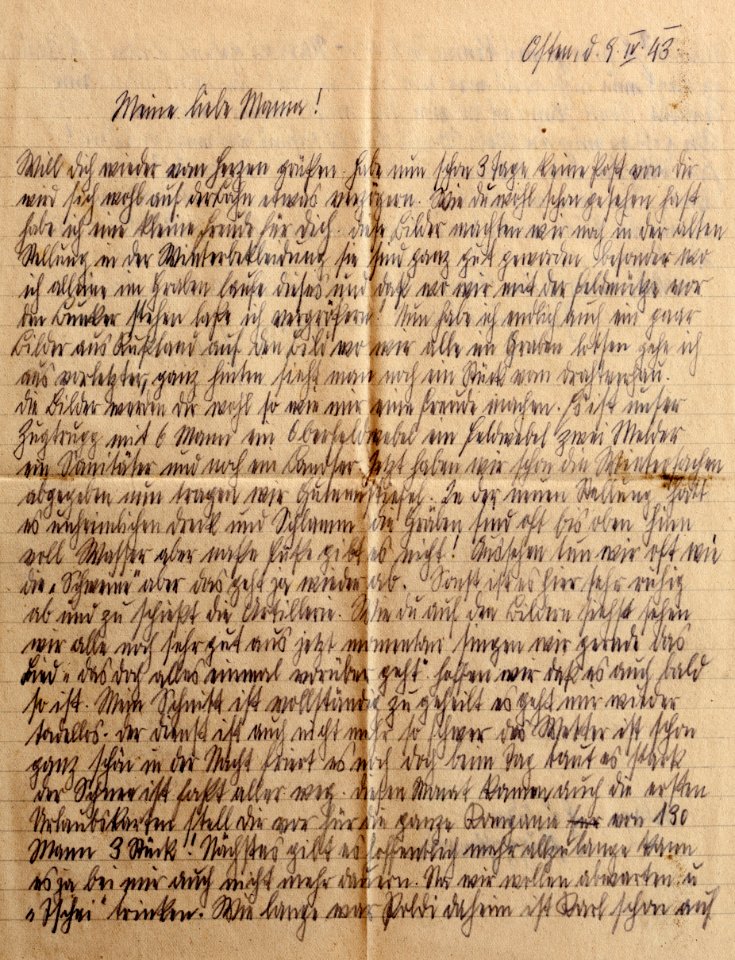 Osten, d. 9. IV. 43.
Meine liebe Mama!
Will dich wieder vom Herzen grüßen. Habe nun schon 3 Tage keine Post von dir
wird sich wohl auf der Bahn etwas verzögern. Wie du wohl schon gesehen hast
habe ich eine kleine Freude für dich. Diese Bilder machten wir noch in der alten
Stellung in der Winterbekleidung sie sind ganz gut geworden besonder wo
ich alleine im Graben laufe dieses und daß wo wir mit der Feldmütze vor
den Bunker stehen laße ich vergrößern! Nun habe ich endlich auch ein paar
Bilder aus Rußland auf den Bild wo wir alle im Graben gehe ich
als vorletzter, ganz hinten sieht man noch ein Stück vom Drahtverhau.
Die Bilder werden dir wohl so wie mir eine Freude machen. Es ist unser
Zugtrupp mit 6 Mann ein Oberfeldwebel ein Feldwebel zwei Melder
ein Sanitäter und noch ein Jetzt haben wir schon die Wintersachen
abgegeben nun tragen wir Gummistiefel. In der neuen Stellung hat
es unheimlichen Dreck und Schlamm die Gräben sind oft bis oben hin
voll Wasser aber naße Füße gibt es nicht! Aussehen tun wir oft wie
die „Schweine" aber das geht ja wieder ab. Sonst ist es hier sehr ruhig
ab und zu schießt die Artillerie. Wie du auf den Bildern siehst sehen
wir alle noch sehr gut aus jetzt momentan singen wir gerade das
Lied „das doch alles einmal vorüber geht" hoffen wir daß es auch bald
so ist. Mein Schnitt ist vollständig zu geheilt es geht mir wieder
tadellos. Der Dienst ist auch nicht mehr so schwer das Wetter ist schon
ganz schön in der Nacht friert es noch doch beim Tag taut es stark
der Schnee ist fast aller weg. Diesen Monat kamen auch die ersten
Urlaubskarten stell dir vor für die ganze Kompanie von 130
Mann 3 Stück!! Nächstes gibt es hoffentlich mehr allzulange kann
es ja bei mir auch nicht mehr dauern. Na wir wollen abwarten u
trinken. Wie lange war Poldi daheim ist Karl schon auf